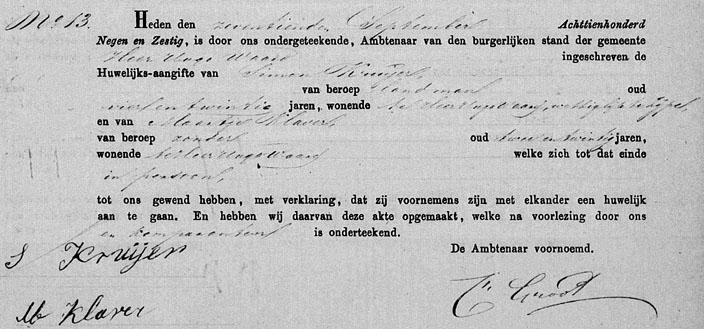 No 13. Heden den zeventiende September Achttienhonderd
Negen en Zestig, is door ons ondergeteekende, Ambtenaar van den burgerlijken stand der gemeente
Heer Hugo Waard ingeschreven de
Huwelijks-aangifte van Simon Kruijer,
van beroep Landman oud
vier en twintig jaren, wonende
en van Maartje Klaver,
van beroep zonder oud twee en twintig jaren,
wonende te Heer Hugo Waard welke zich tot dat einde
in persoon
tot ons gewend hebben, met verklaring, dat zij voornemens zijn met elkander een huwelijk
aan te gaan. En hebben wij daarvan deze akte opgemaakt, welke na voorlezing door ons
en komparanten is onderteekend.
De Ambtenaar voornoemd.
S Kruijer
Groot
M Klaver